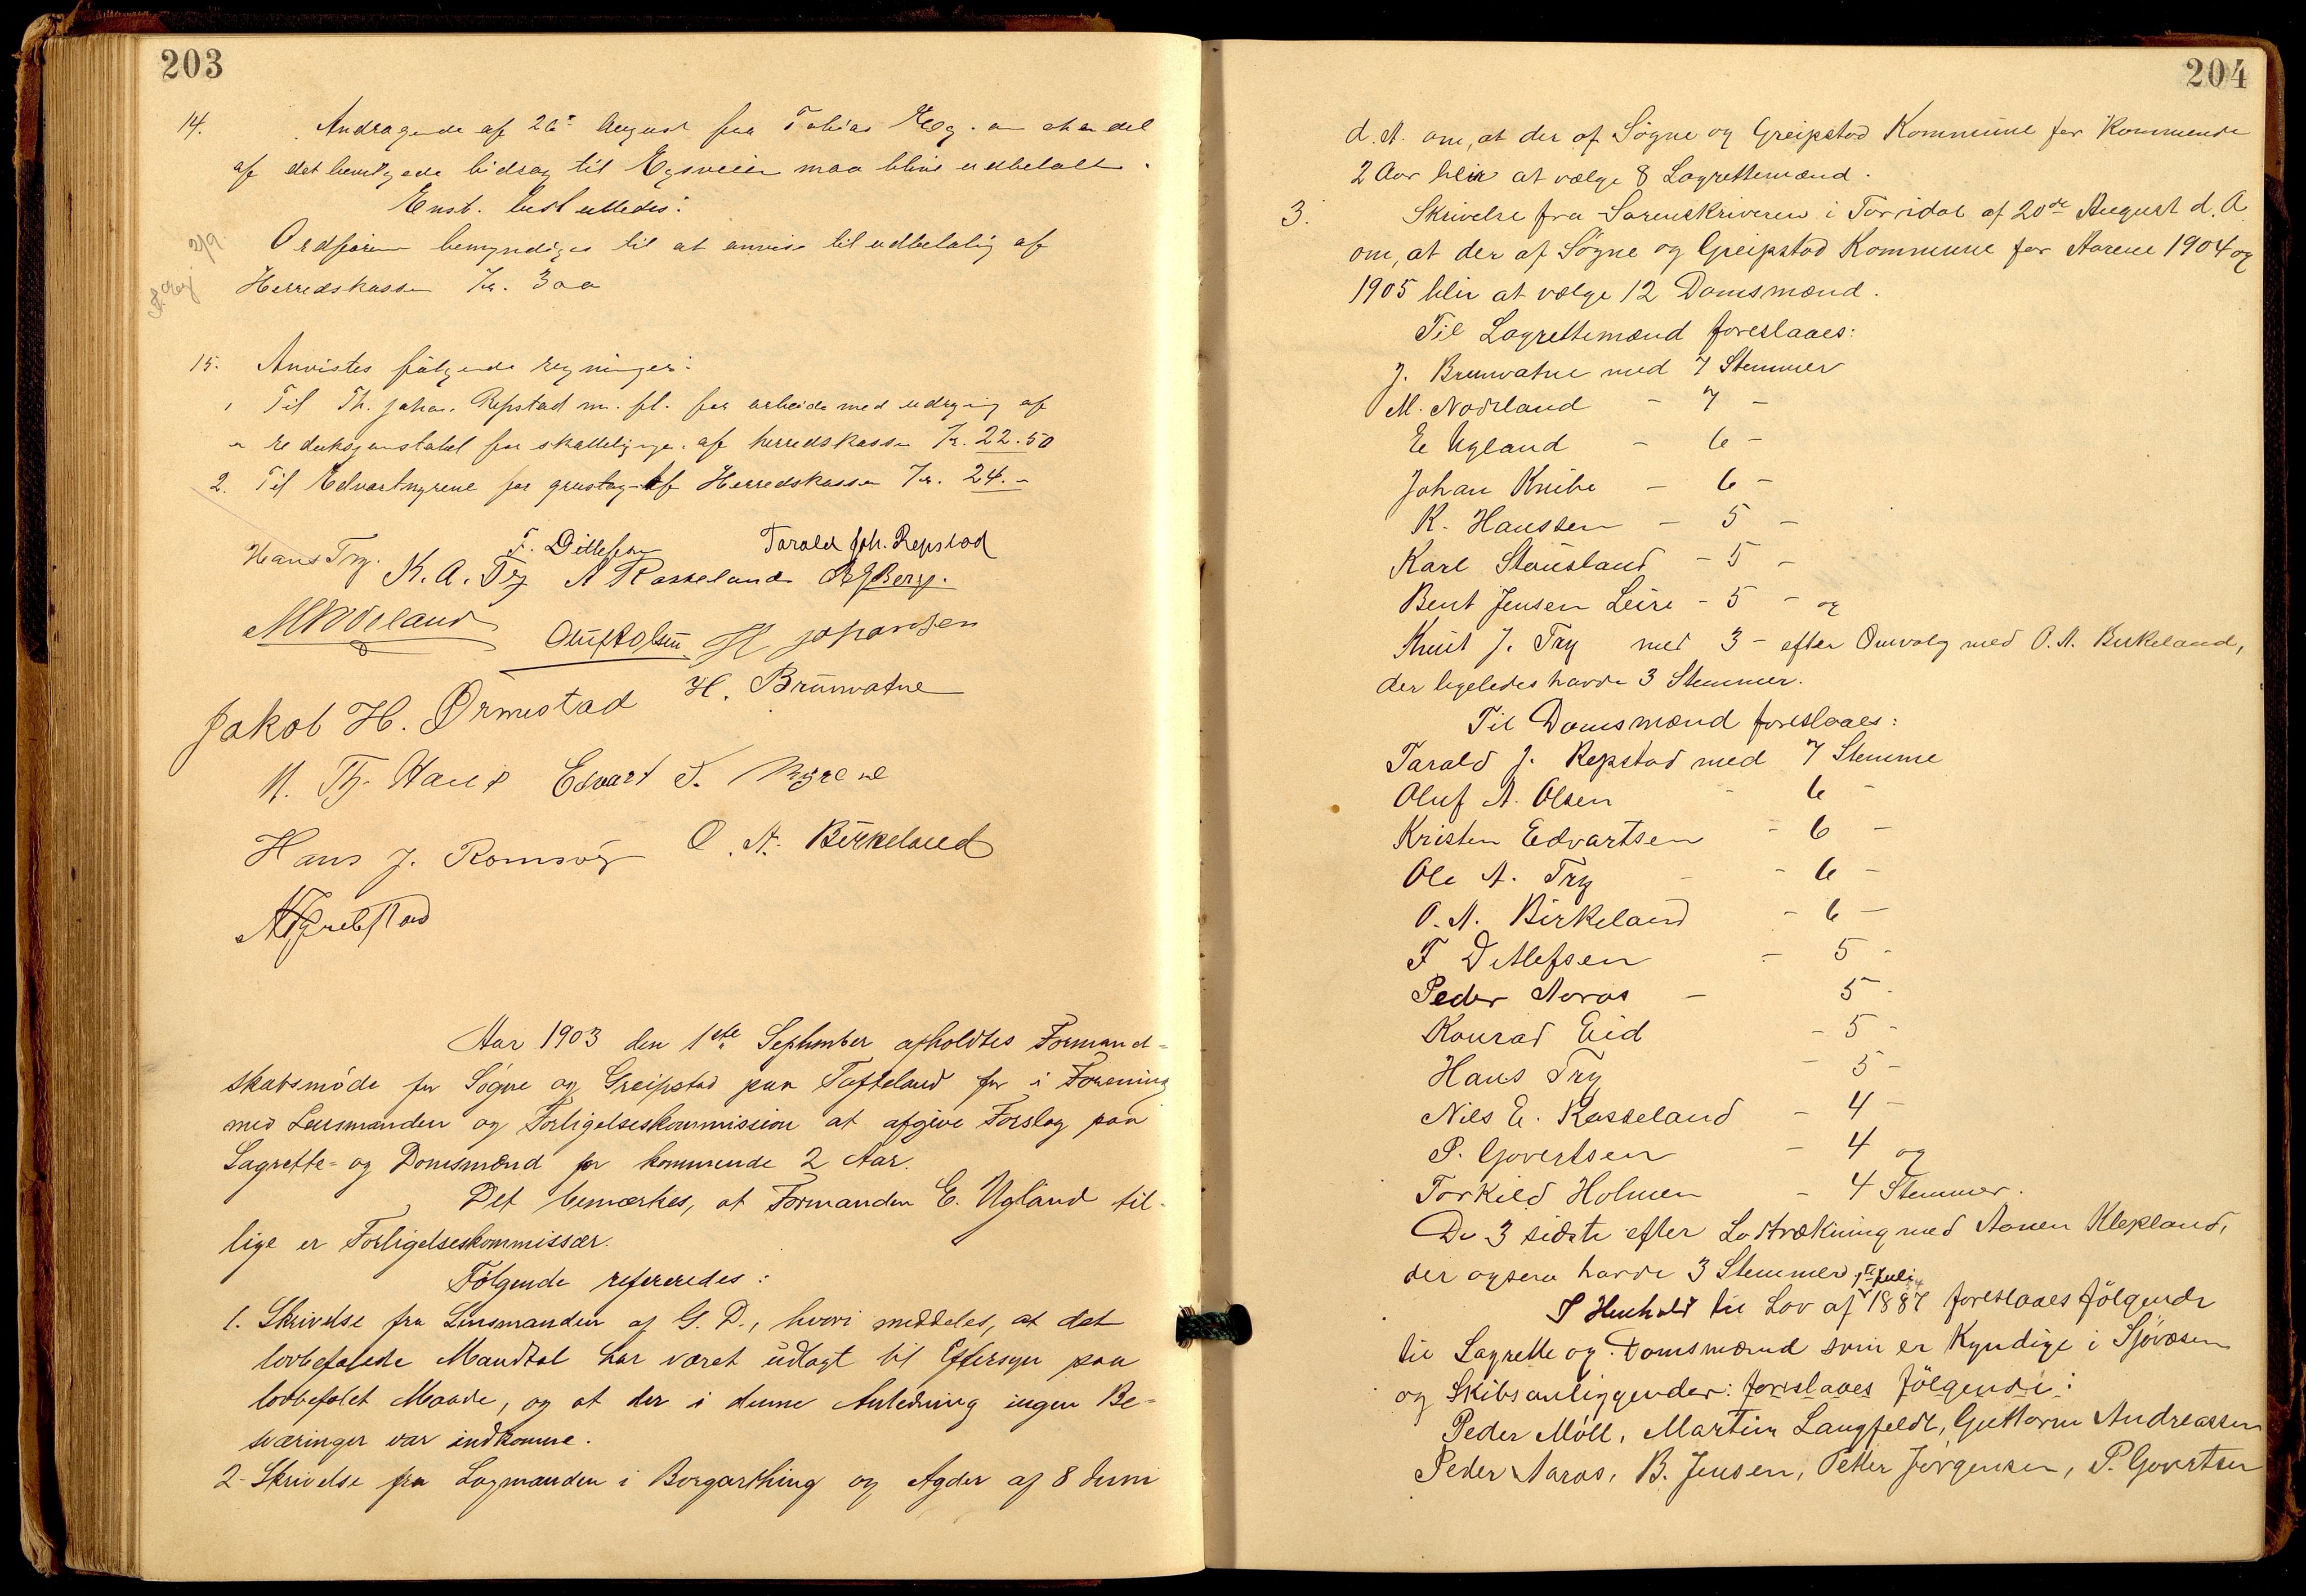 203
14. Andragende af 26de August fra Tobias Eeg. om at en del
af det bevilgede bidrag til Egsveien maa blive udbetalt.
Enst. besluttedes:
Ordføreren bemyndiges til at anvise til udbetaling af
Herredskassen Kr. 300
2/9
15. Anvistes følgende regninger:
1 Til Th. Johan. Repstad m. fl. for arbeide med udregning af
reduksjonstabel for skatteligningen af herredskassen Kr. 22.50
2. Til Edvart Myrene for grustag af Herredskassen Kr. 24.-
Hans Try. F. Ditlefsen Tarald Joh. Repstad
K. A. Try N Rosseland Berge.
M Nodeland Oluf A Olsen H Johansen
Jakob H. Ormestad H. Brunvatne
N. Th. Edvart T. Myrene
Hans J. Romsøy O. N. Birkeland
N Greibstad
Aar 1903 den 1ste September afholdtes Formand-
skabsmøde for Søgne og Greipstad paa Tofteland for i Forening
med Lensmanden og Forligelseskommission at afgive Forslag paa
Lagrette- og Domsmænd for kommende 2 Aar.
Det bemærkes, at Formanden E. Ugland til-
lige er Forligelseskommissær.
Følgende refereredes:
1. Skrivelse fra Lensmanden af G. D., hvori meddeles, at det
lovbefalede Mandtal har været udlagt til Eftersyn paa
lovbefalet Maade, og at der i denne Anledning ingen Be-
sværinger var indkomne.
2- Skrivelse fra Lagmanden i Borgarthing og Agder af 8 Juni
204
d. A. om, at der af Søgne og Greipstad Kommune for Kommende
2 Aar blir at vælge 8 Lagrettemænd.
3. Skrivelse fra Sorenskriveren i Torridal af 20de August d. A
om, at der af Søgne og Greipstad Kommune for Aarene 1904 og
1905 blir at vælge 12 Domsmænd.
Til Lagrettemænd foreslaaes:
J. Brunvatne med 7 Stemmer
M. Nodeland - 7 -
E Ugland - 6 -
Johan Knibe - 6 -
K. Hanssen - 5 -
Karl Stausland - 5 -
Bent Jensen Leire - 5 - og
Knut J. Try med 3 - efter Omvalg med O. N. Birkeland,
der ligeledes havde 3 Stemmer.
Til Domsmænd foreslaaes:
Tarald J. Repstad med 7 Stemme
Oluf A. Olsen - 6 -
Kristen Edvartsen - 6 -
Ole A. Try - 6 -
O. N. Birkeland - 6 -
F Ditlefsen - 5 -
Peder Aaros - 5 -
Konrad Eid - 5 -
Hans Try - 5 -
Nils E. Rosseland - 4 -
P. Govertsen - 4 og
Torkild Holmen - 4 Stemmer.
De 3 sidste efter Lodtrækning med Aanen Klepland,
der ogsaa havde 3 Stemmer
I Henhold til Lov af 1ste Juli 1887 foreslaaes følgende
til Lagrette og Domsmænd som er Kyndige i Sjøvæsen
og Skibsanliggender: foreslaaes følgende:
Peder Möll, Martin Langfeldt, Guttorm Andreassen
Peder Aaros, B. Jensen, Petter Jørgensen, P. Govertsen